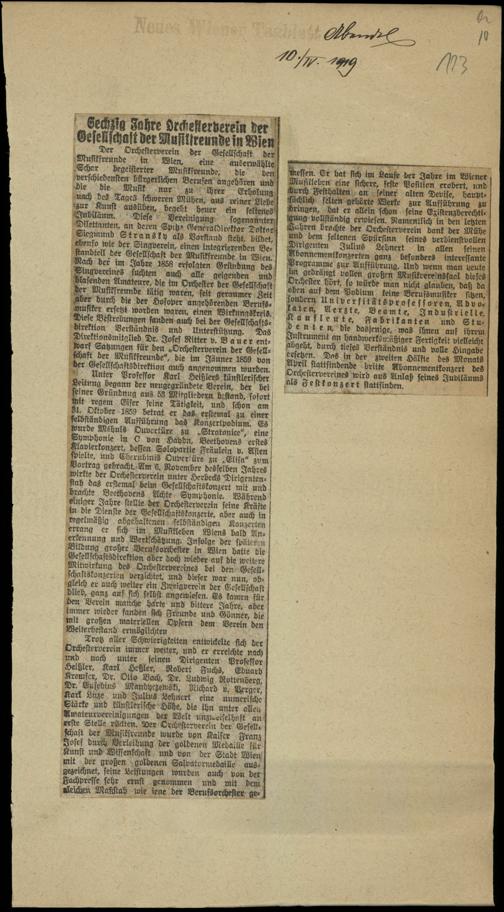 Neues Wiener Tagblatt
Abendbl
10./IV. 1919
113
Sechzig Jahre Orchesterverein der
Gesellschaft der Musikfreunde in Wien
Der Orchesterverein der Gesellschaft der
Musikfreunde in Wien, eine auserwählte
Schar begeisterter Musikfreunde, die den
verschiedensten bürgerlichen Berufen angehören und
die die Musik nur zu ihrer Erholung
nach des Tages schweren Mühen, aus reiner Liebe
zur Kunst ausüben, begeht heuer ein seltenes
Jubiläum. Diese Vereinigung sogenannter
Dilettanten, an deren Spitze Generaldirektor Doktor
Siegmund Stransky als Vorstand steht, bildet,
ebenso wie der Singverein, einen integrierenden Be-
standteil der Gesellschaft der Musikfreunde in Wien.
Nach der im Jahre 1858 erfolgten Gründung des
Singvereines suchten auch alle geigenden und
blasenden Amateure, die im Orchester der Gesellschaft
der Musikfreunde tätig waren, seit geraumer Zeit
aber durch die der Hofoper angehörenden Berufs-
musiker ersetzt worden waren, einen Wirkungskreis.
Diese Bestrebungen fanden auch bei der Gesellschafts-
direktion Verständnis und Unterstützung. Das
Direktionsmitglied Dr. Josef Ritter v. Bauer ent-
warf Satzungen für den „Orchesterverein der Gesell-
schaft der Musikfreunde“, die im Jänner 1859 von
der Gesellschaftsdirektion auch angenommen wurden.
Unter Professor Karl Heißlers künstlerischer
Leitung begann der neugegründete Verein, der bei
seiner Gründung aus 53 Mitgliedern bestand, sofort
mit regem Eifer seine Tätigkeit, und schon am
31. Oktober 1859 betrat er das erstemal zu einer
selbständigen Aufführung das Konzertpodium. Es
wurde Méhuls Ouvertüre zu „Stratonice“, eine
Symphonie in C von Haydn, Beethovens erstes
Klavierkonzert, dessen Solopartie Fräulein v. Asten
spielte, und Cherubinis Ouvertüre zu „Elisa“ zum
Vortrag gebracht. Am 6. November desselben Jahres
wirkte der Orchesterverein unter Herbecks Dirigenten-
stab das erstemal beim Gesellschaftskonzert mit und
brachte Beethovens Achte Symphonie. Während
einiger Jahre stellte der Orchesterverein seine Kräfte
in die Dienste der Gesellschaftskonzerte, aber auch in
regelmäßig abgehaltenen selbständigen Konzerten
errang er sich im Musikleben Wiens bald An-
erkennung und Wertschätzung. Infolge der späteren
Bildung großer Berufsorchester in Wien hatte die
Gesellschaftsdirektion aber doch wieder auf die weitere
Mitwirkung des Orchestervereines bei den Gesell-
schaftskonzerten verzichtet, und dieser war nun, ob-
gleich er auch weiter ein Zweigverein der Gesellschaft
blieb, ganz auf sich selbst angewiesen. Es kamen für
den Verein manche harte und bittere Jahre, aber
immer wieder fanden sich Freunde und Gönner, die
mit großen materiellen Opfern dem Verein den
Weiterbestand ermöglichten
Trotz aller Schwierigkeiten entwickelte sich der
Orchesterverein immer weiter, und er erreichte nach
und nach unter seinen Dirigenten Professor
Heißler, Karl Heßler, Robert Fuchs, Eduard
Kremser, Dr. Otto Bach, Dr. Ludwig Rottenberg,
Dr. Eusebius Mandyczewski, Richard v. Perger,
Karl Luze und Julius Lehnert eine numerische
Stärke und künstlerische Höhe, die ihn unter allen
Amateurvereinigungen der Welt unzweifelhaft an
erste Stelle rückten. Der Orchesterverein der Gesell-
schaft der Musikfreunde wurde von Kaiser Franz
Josef durch Verleihung der goldenen Medaille für
Kunst und Wissenschaft und von der Stadt Wien
mit der großen goldenen Salvatormedaille aus-
gezeichnet, seine Leistungen wurden auch von der
Fachpresse sehr ernst genommen und mit dem
gleichen Maßstab wie jene der Berufsorchester ge-
messen. Er hat sich im Laufe der Jahre im Wiener
Musikleben eine sichere, feste Position erobert, und
durch Festhalten an seiner alten Devise, haupt-
sächlich selten gehörte Werke zur Aufführung zu
bringen, hat er allein schon seine Existenzberechti-
gung vollständig erwiesen. Namentlich in den letzten
Jahren brachte der Orchesterverein dank der Mühe
und dem seltenen Spürsinn seines verdienstvollen
Dirigenten Julius Lehnert in allen seinen
Abonnementkonzerten ganz besonders interessante
Programme zur Aufführung. Und wenn man heute
im gedrängt vollen großen Musikvereinssaal dieses
Orchester hört, so würde man nicht glauben, daß da
oben auf dem Podium keine Berufsmusiker sitzen,
sondern Universitätsprofessoren, Advo-
katen, Aerzte, Beamte, Industrielle,
Kaufleute, Fabrikanten und Stu-
denten, die dasjenige, was ihnen auf ihrem
Instrument an handwerksmäßiger Fertigkeit vielleicht
abgeht, durch tiefes Verständnis und volle Hingabe
ersetzen. Das in der zweiten Hälfte des Monats
April stattfindende dritte Abonnementkonzert des
Orchestervereins wird aus Anlaß seines Jubiläums
als Festkonzert stattfinden.